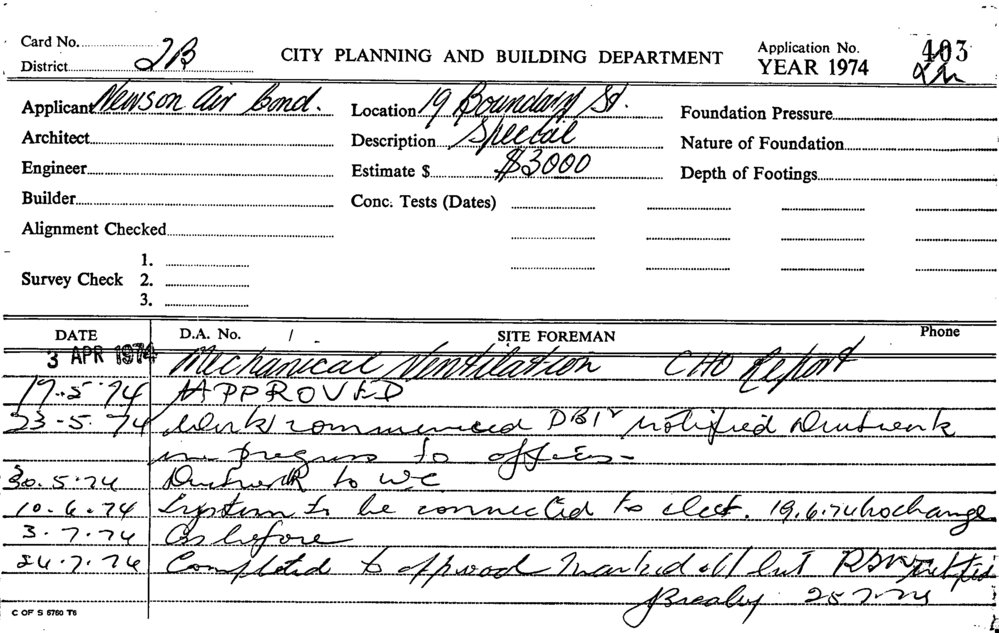 Card No. 2B
District
CITY PLANNING AND BUILDING DEPARTMENT
Application No. 403
YEAR 1974
Applicant Newson Air Cond. Location 19 Boundary St. Foundation Pressure
Architect Description Special Nature of Foundation
Engineer Estimate $ $3000 Depth of Footings
Builder Conc. Tests (Dates)
Alignment Checked
1.
Survey Check 2.
3.
DATE D.A. No. / SITE FOREMAN Phone
3 APR 1974 Mechanical Ventilation CHO Report
17.5.74 APPROVED
23-5.74 Work commenced notified Ductwork
in progress to offices-
30.5.74 Ductwork to WC
10.6.74 System to be connected to elect. 19.6.74 No change
3.7.74 As before
24.7.74 Completed to approval Marked off list notified
25.7.74
C OF S 5760 T6